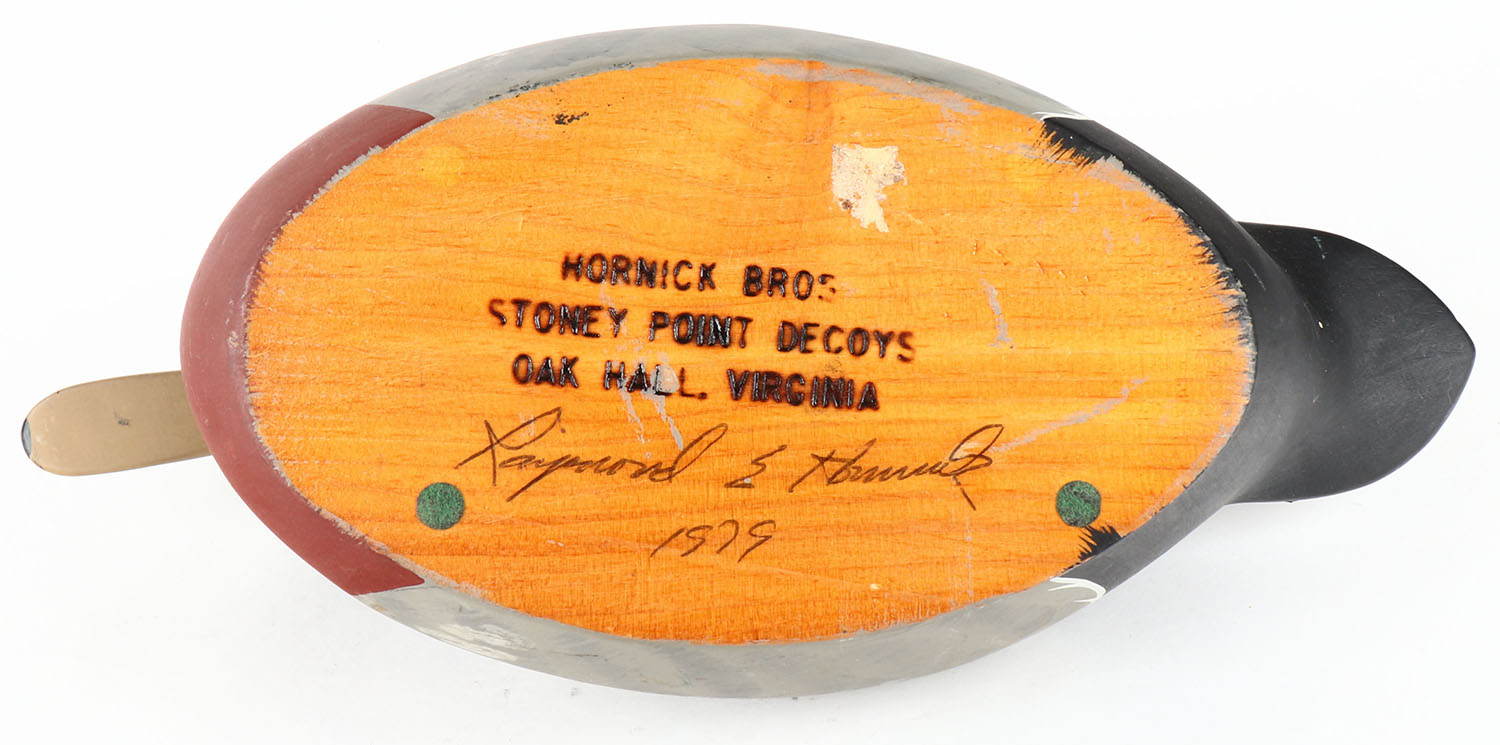 HORNICK BROS.
STONEY POINT DECOYS
OAK HALL. VIRGINIA
Raymond E Hornick
1979